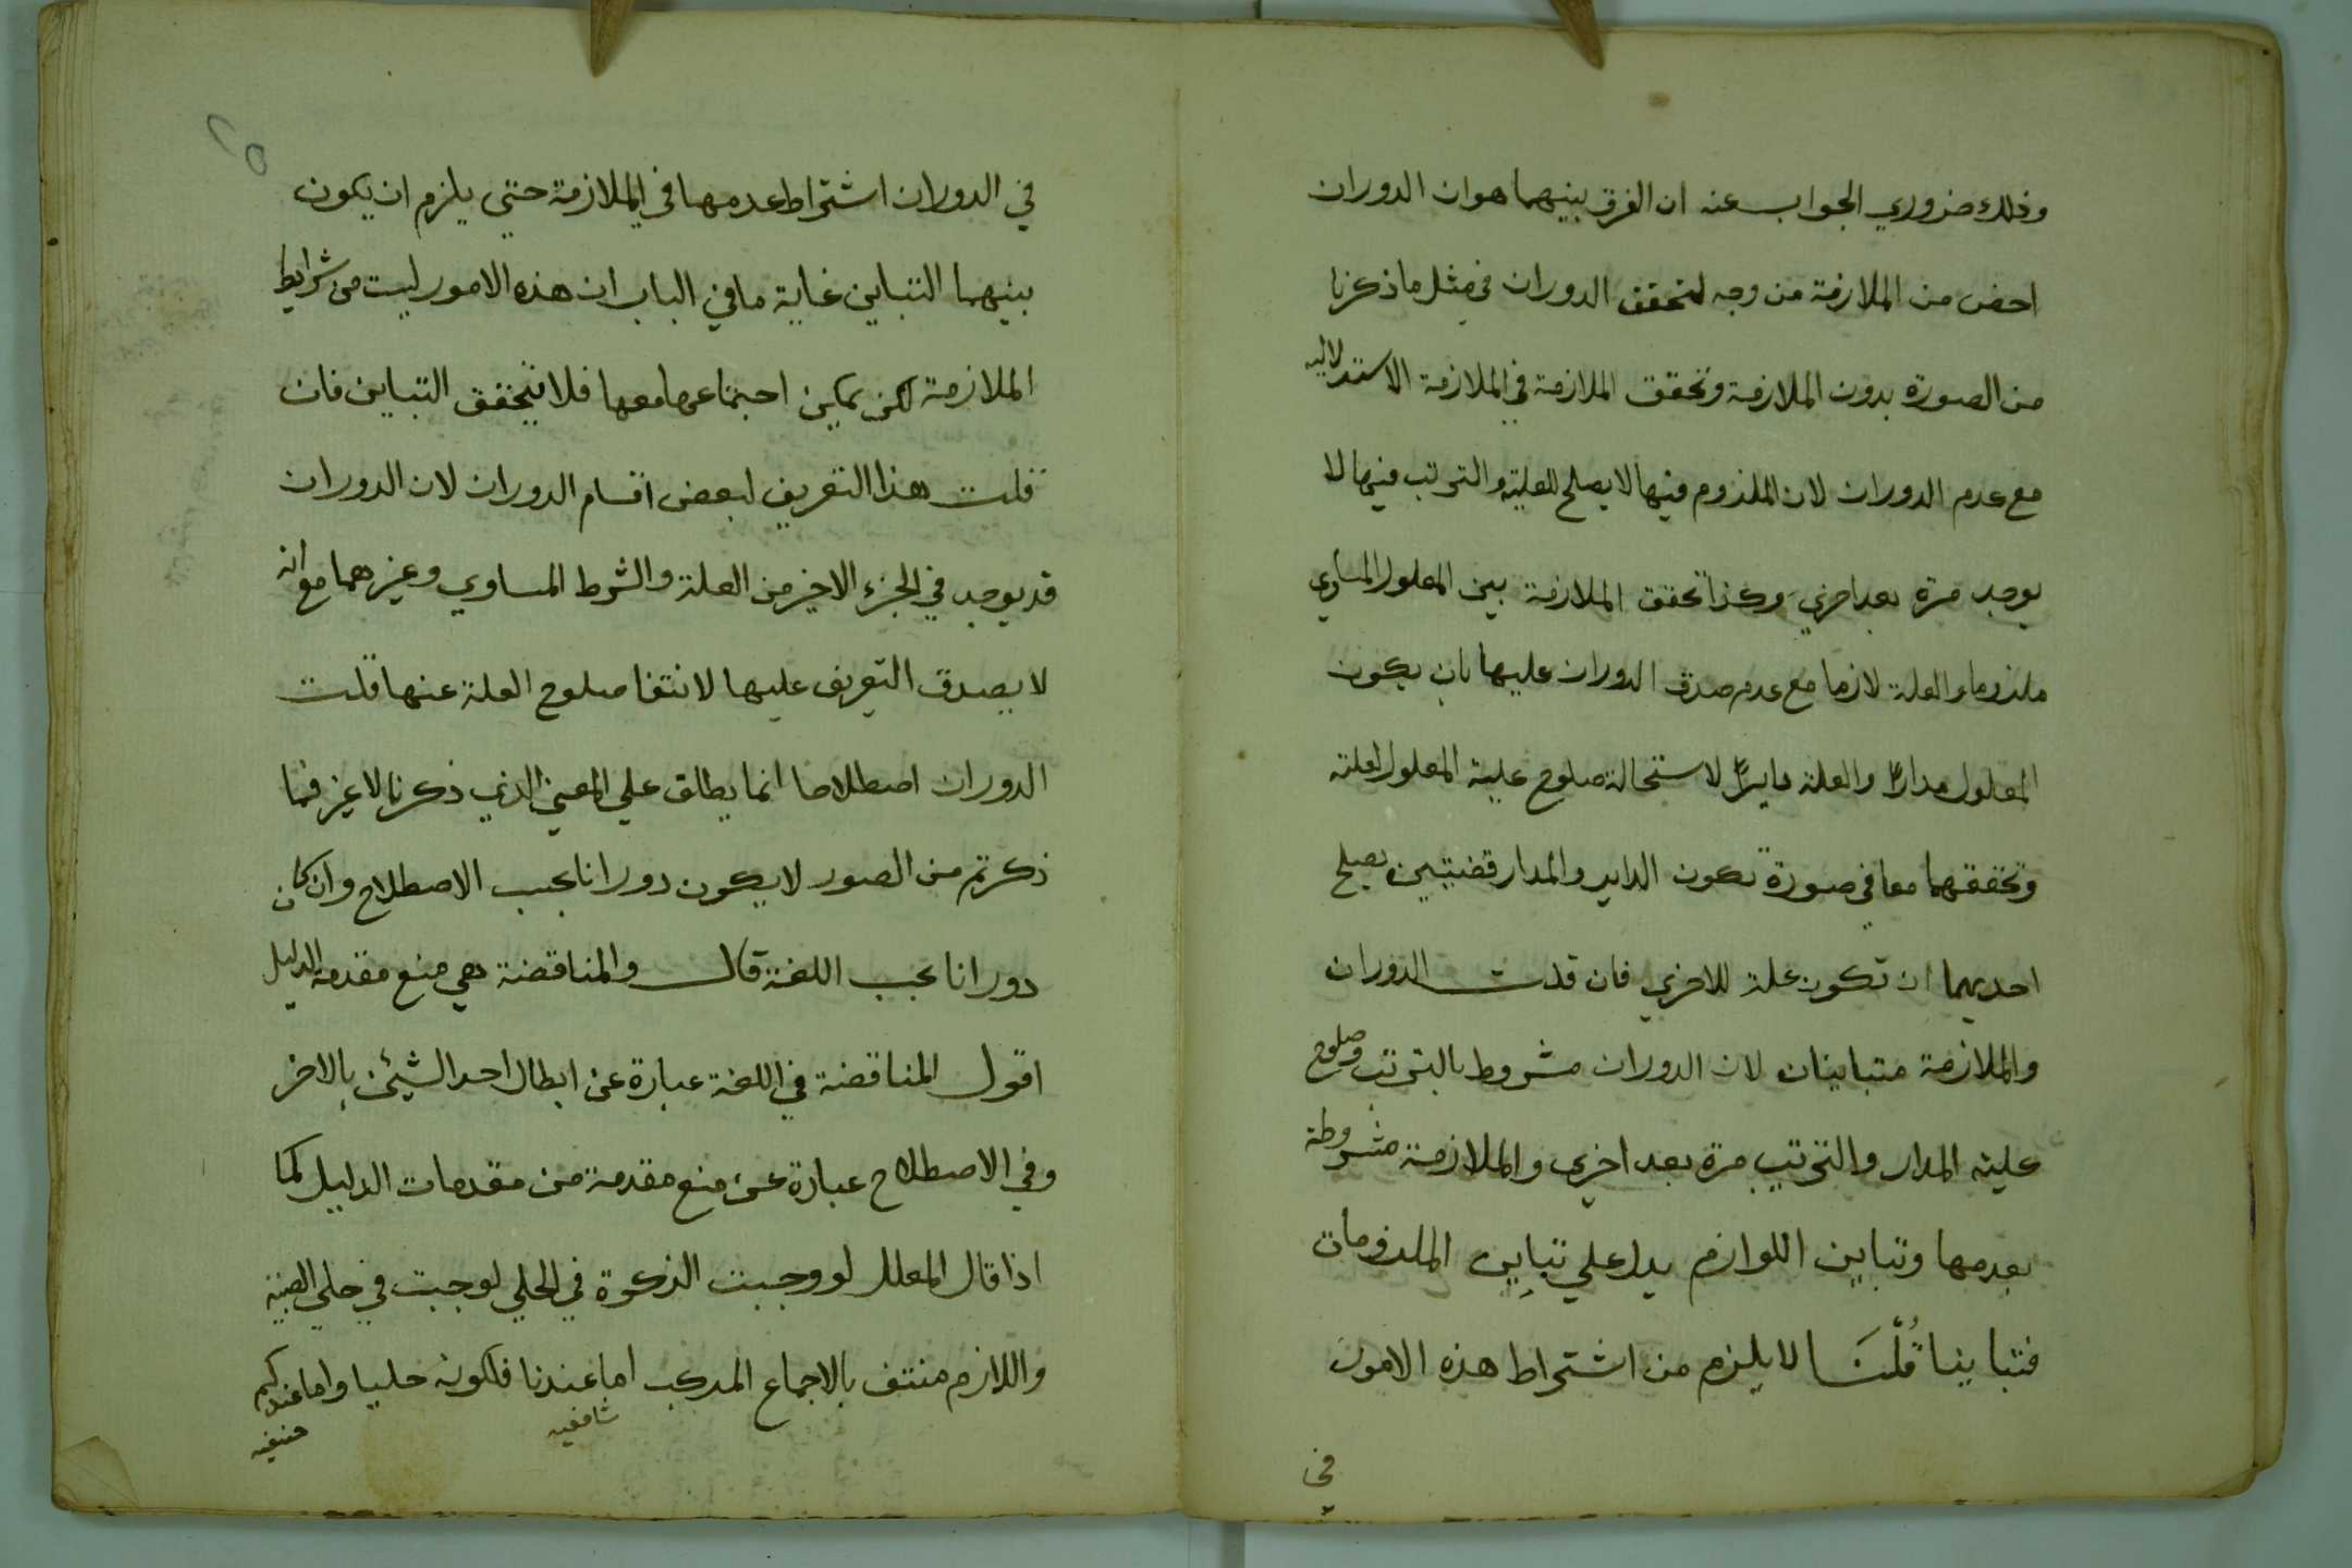 وذلك ضروري الجواب عنه ان الفرق بينهما هو ان الدوران
اخص من الملازمة من وجه لتحقق الدوران في مثل ما ذكرنا
من الصورة بدون الملازمة وتحقق الملازمة في الملازمة الاستدلاليه
مع عدم الدوران لان الملزوم فيها لا يصلح للعلية والترتب فيها لا
يوجد مرة بعد اخري وكذا تحقق الملازمة بين المعلول المساوي
ملزوما والعلة لازما مع عدم صدق الدوران عليها بان يكون
المعلول مدارًا والعلة دايرًا لاستحالة صلوح علية المعلول لعلته
وتحققهما معا في صورة تكون الداير والمدار قضيتين يصلح
احديهما ان تكون علة للاخري فان قلت الدوران
والملازمة متباينان لان الدوران مشروط بالترتب وصلوح
علية المدار والترتيب مرة بعد اخري والملازمة مشروطة
بعدمها وتباين اللوازم يدل علي تباين الملزومات
فتباينا قُلْنَا لا يلزم من اشتراط هذه الامور
في
٢٥
في الدوران اشتراط عدمها في الملازمة حتي يلزم ان يكون
بينهما التباين غاية ما في الباب ان هذه الامور ليست من شرايط
الملازمة لكن يمكن اجتماعها معها فلا يتحقق التباين فان
قلت هذا التعريف لبعض اقسام الدوران لان الدوران
قد يوجد في الجزء الاخير من العلة والشرط المساوي وغيرهما مع انه
لا يصدق التعريف عليها لانتفا صلوح العلة عنها قلت
الدوران اصطلاحا انما يطلق علي المعني الذي ذكرنا لا غير فما
ذكرتم من الصور لا يكون دورانا بحسب الاصطلاح وان كان
دورانا بحسب اللغة قال والمناقضة هي منع مقدمة الدليل
اقول المناقضة في اللغة عبارة عن ابطال احد الشيئن بالاخر
وفي الاصطلاح عبارة عن منع مقدمة من مقدمات الدليل كما
اذا قال المعلل لو وجبت الزكوة في الحلي لوجبت في حلي الصبية
واللازم منتف بالاجماع المركب اما عندنا فلكونه حليا واما عندكم
شافعيه
حنفيه